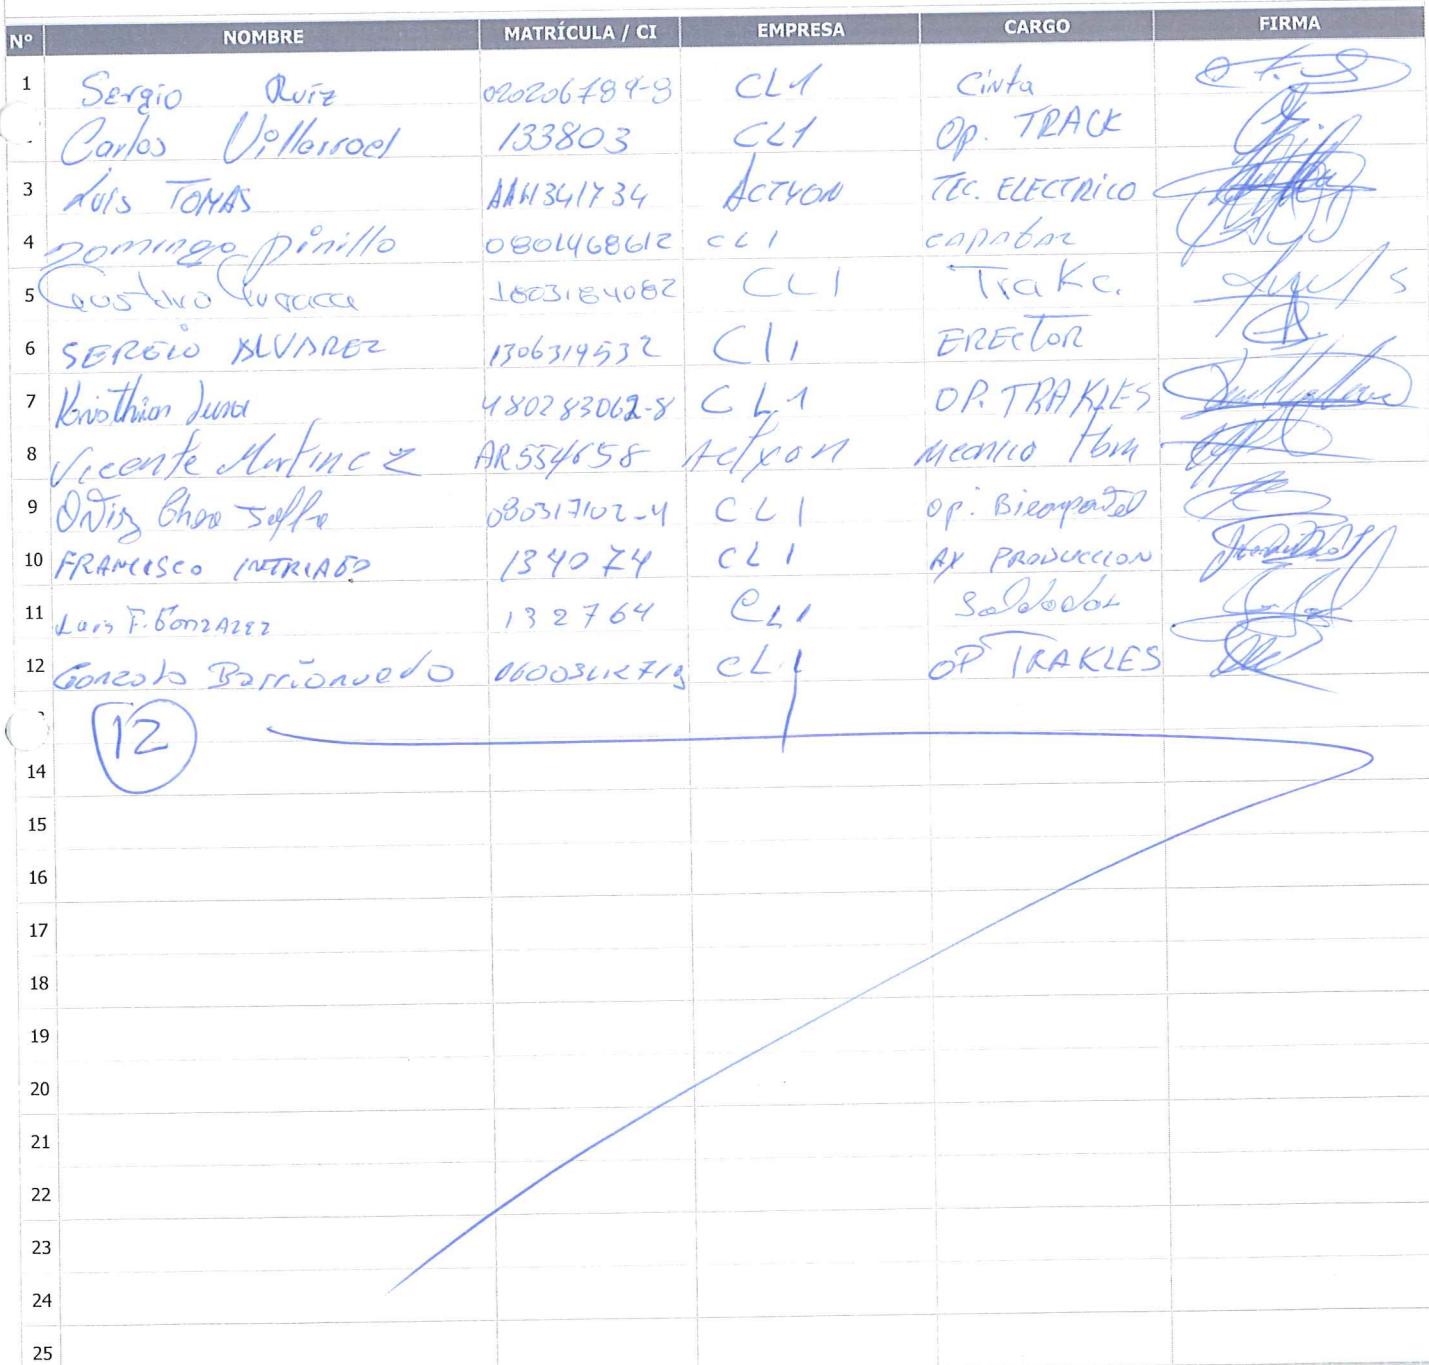 Nº NOMBRE MATRÍCULA / CI EMPRESA CARGO FIRMA
1 Sergio Ruiz 020206789-8 CL1 Cinta
Carlos Villarroel 133803 CL1 Op. TRACK
3 Luis TOMAS AAH341734 ACTYON TEC. ELECTRICO
4 Domingo Pinillo 0801468612 CL1
5 1803184082 CL1 Trakc.
6 SERGIO ALVAREZ 1306319532 CL1 ERECTOR
7 Kristhian 480283062-8 CL1 OP. TRAKLES
8 Vicente Martinez AR554658 Actyon mecnico tbm
9 080317102-4 CL1 Op.
10 FRANCISCO INTRIAGO 134074 CL1 AX PRODUCCION
11 Luis F. GONZALEZ 132764 CL1 Soldador
12 Gonzalo Barrionuevo CL1 OP TRAKLES
12
14
15
16
17
18
19
20
21
22
23
24
25